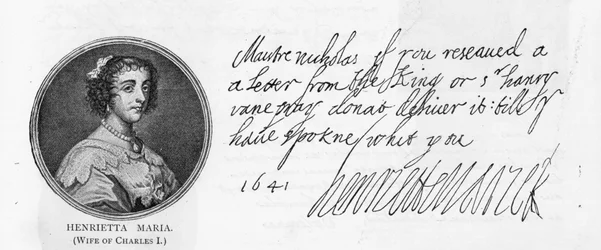 HENRIETTA MARIA.
(WIFE OF CHARLES I.)
Maistre nicholas if you reseaued a
a Letter from the King or sr hanry
vane pray donat deliuer it: till y
haue spokne whit you
1641
henriettemarieR